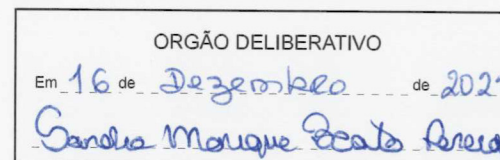 ORGÃO DELIBERATIVO
Em 16 de Dezembro de 202
Sandra Monique Beato Pereira